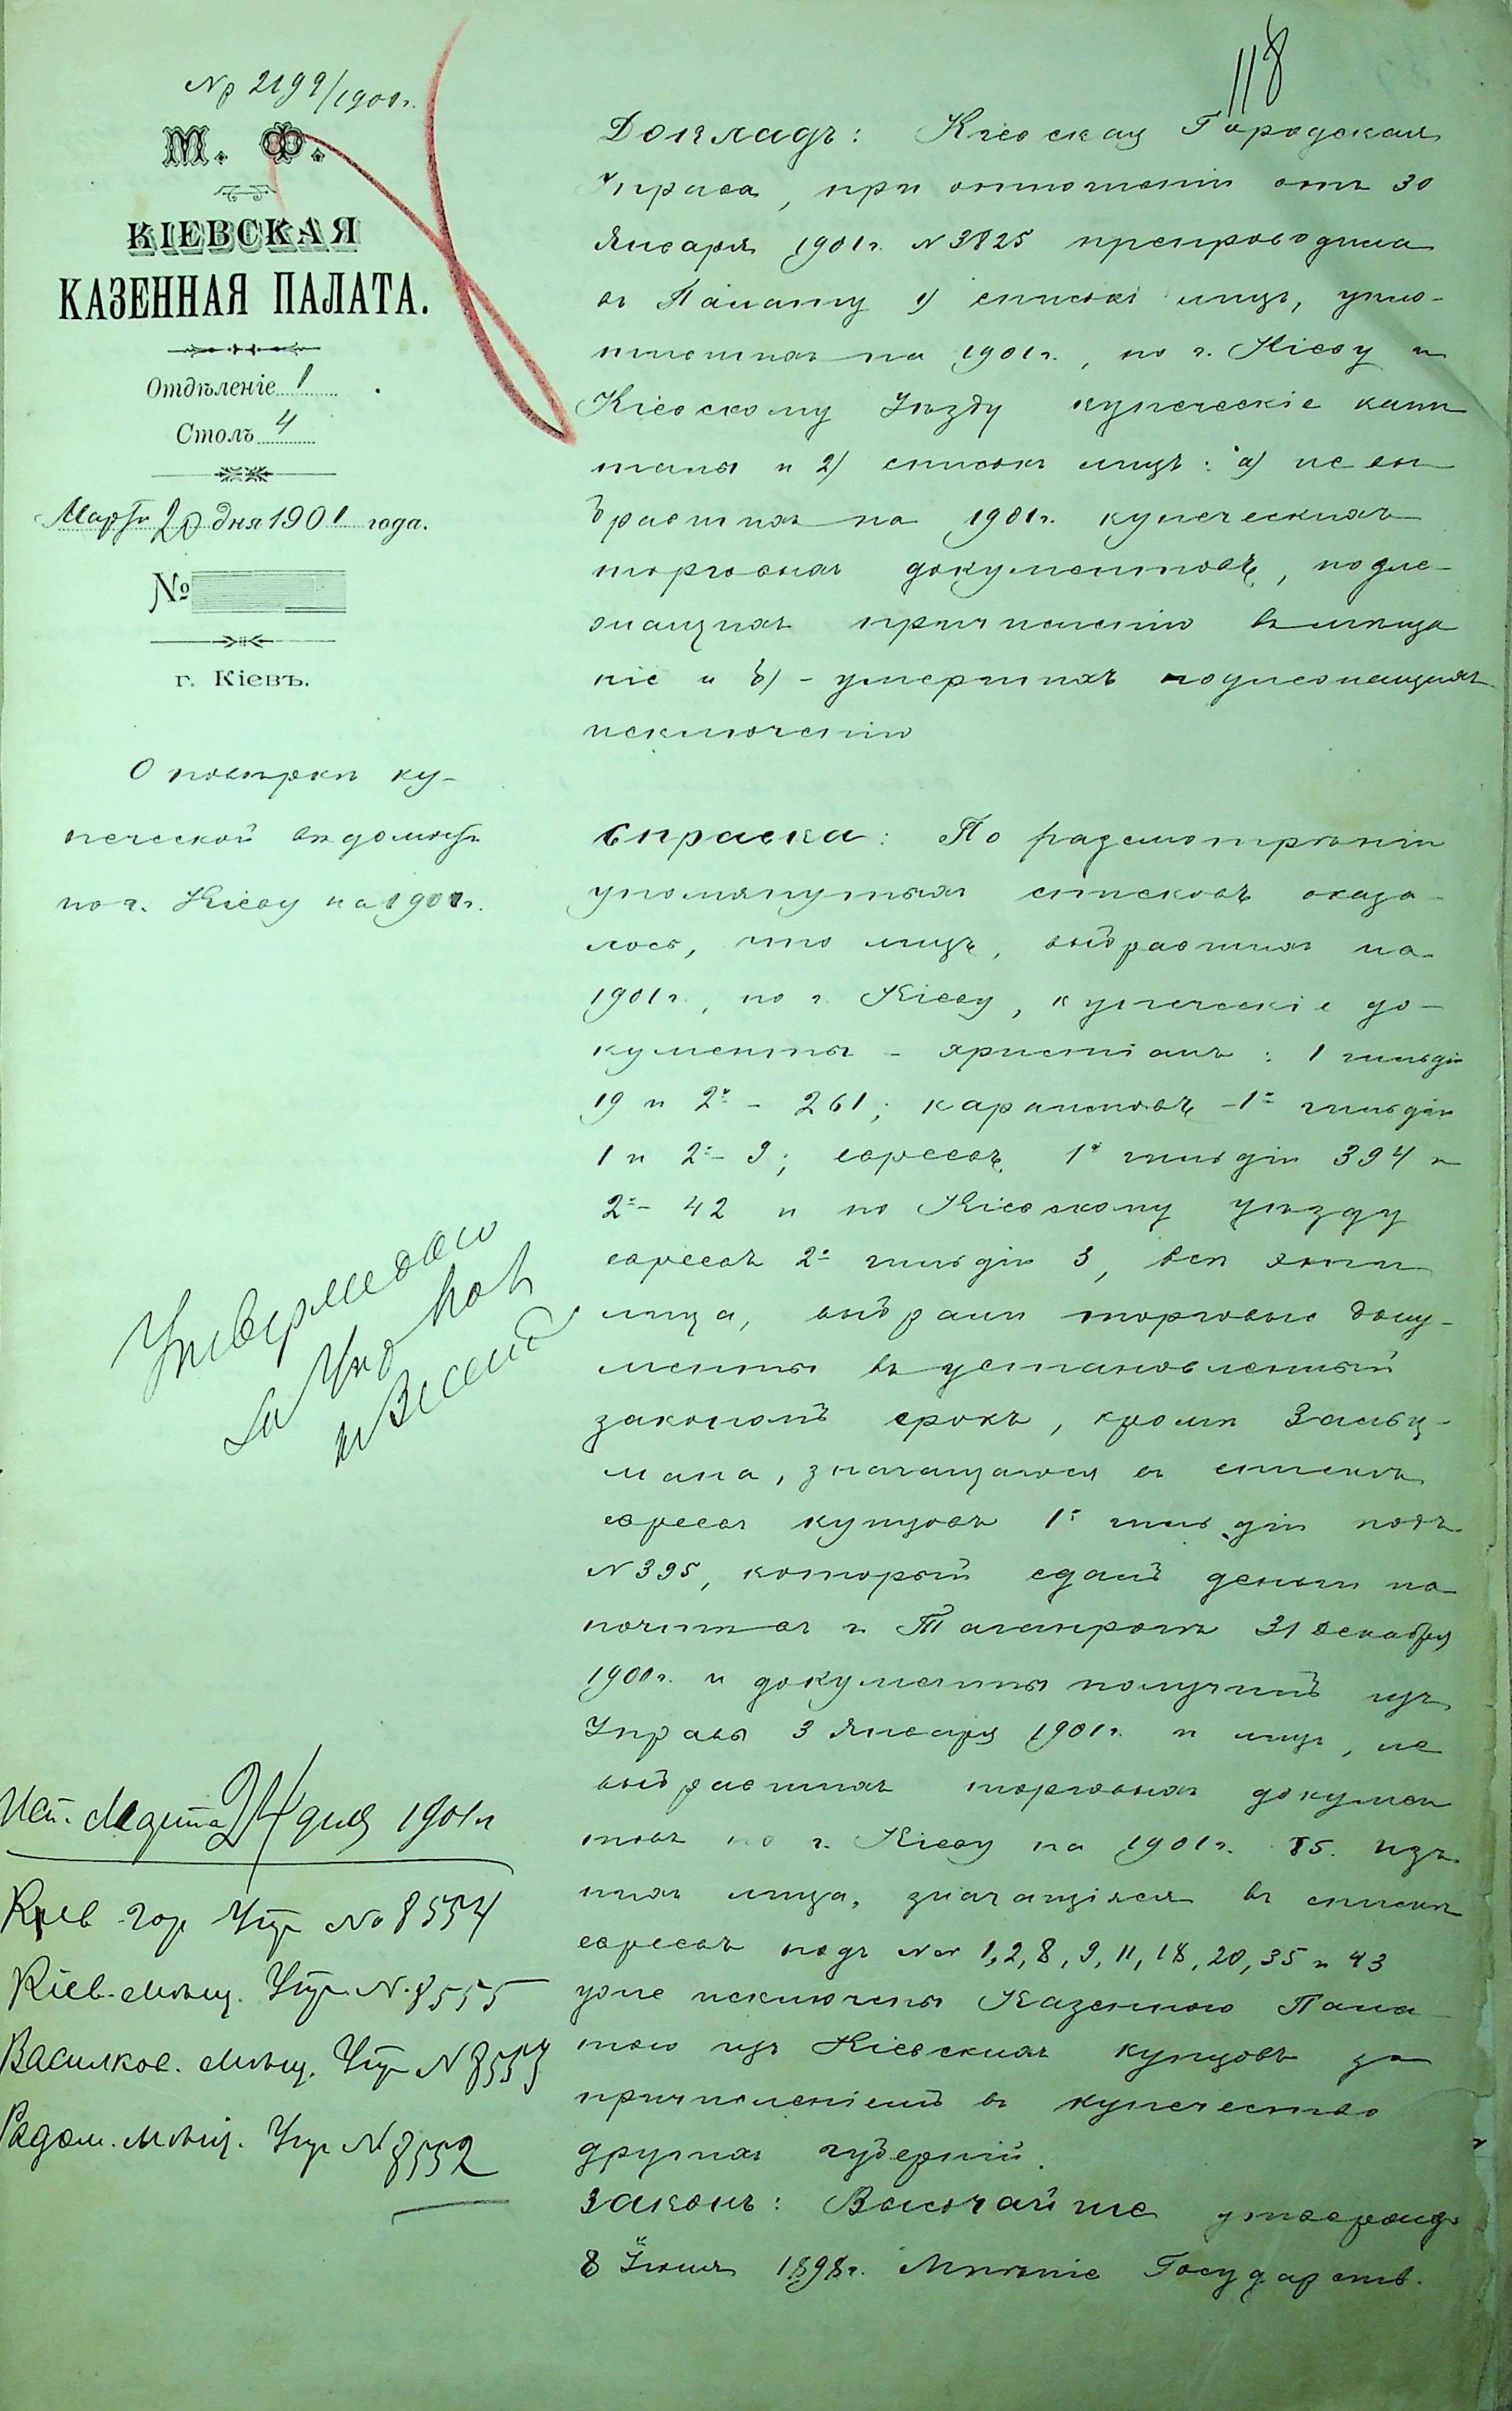 118
№ 2199/1900г.
М. Ф.
КІЕВСКАЯ
КАЗЕННАЯ ПАЛАТА.
Отдѣленіе 1
Столъ 4
Мартъ 20 дня 1901 года.
№
г. Кіевъ.
О повѣркѣ ку-
печеской вѣдомости
по г. Кіеву на 1901г.
Утверждаю
Исп. Марта 24 дня 1901 г
Кіев. гор Упр № 8554
Кіев. мѣщ. Упр. N. 8555
Василков. мѣщ. Упр N 8553
Радом. мѣщ. Упр N 8552
Докладъ: Кіевская Городская
Управа, при отношеніи отъ 30
Января 1901г. N 3825 препроводила
въ Палату 1) списки лицъ, упло-
тившихъ на 1901г., по г. Кіеву и
Кіевскому Уѣзду купеческіе капи
талы и 2) списокъ лицъ: а) не вы
бравшихъ на 1901г. купеческихъ
торговыхъ документовъ, подле-
жащихъ причисленію въ мѣща
не и б) - умершихъ подлежащихъ
исключенію
Справка: По разсмотрѣніи
упомянутыхъ списковъ оказа-
лось, что лицъ, выбравшихъ на
1901г., по г. Кіеву, купеческіе до-
кументы - христіанъ: 1 гильдіи
19 и 2й - 261; караимовъ - 1й гильдіи
1 и 2й - 9; евреевъ 1й гильдіи 394 и
2й - 42 и по Кіевскому уѣзду
евреевъ 2й гильдіи 3, всѣ эти
лица, выбрали торговые доку-
менты въ установленный
закономъ срокъ, кромѣ Зальц-
мана, значащагося въ спискѣ
евреевъ купцовъ 1й гильдіи подъ
N 395, который сдалъ деньги на
почту въ г. Таганрогѣ 31 Декабря
1900г. и документы получилъ изъ
Управы 3 Января 1901г. и лицъ, не
выбравшихъ торговыхъ докумен
товъ по г. Кіеву на 1901г. 85. Изъ
нихъ лица, значащіяся въ спискѣ
евреевъ подъ NN 1, 2, 8, 9, 11, 18, 20, 35 и 43
уже исключены Казенною Пала-
тою изъ Кіевскихъ купцовъ за
причисленіемъ въ купечество
другихъ губерній.
Законъ: Высочайше утвержд.
8 Іюня 1898г. Мнѣніе Государств.